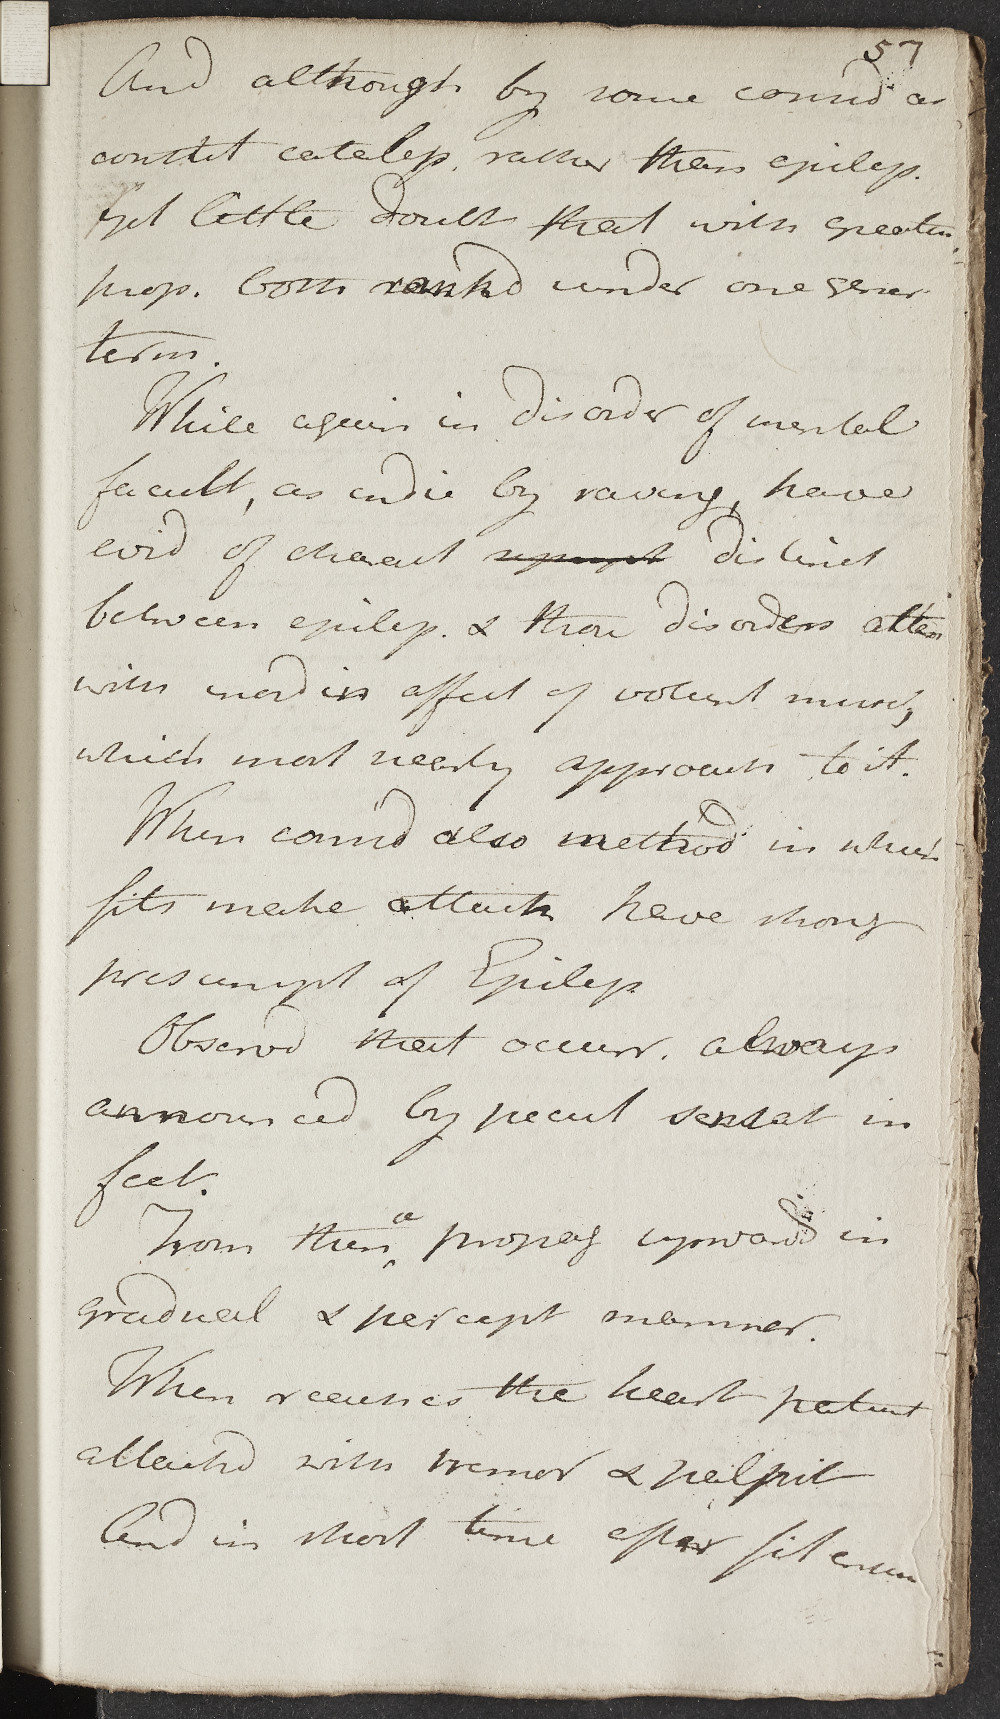 57
And although by some consid as
constit catalep. rather than epilep.
yet little doubt that with greater
prop. both rankd under one gener
term.
While again in disorder of mental
facult, as indic by raving, have
evid of charact distinct
between epilep. & those disorders atten
with mord in affect of volunt musc,
which most nearly approach to it.
When consid also method in which
fits make attack have strong
presumpt of Epilep
Observd that occurr. always
announced by pecul sensat in
feet.
From thence propag upward in
gradual & percept manner.
When reaches the heart patient
attackd with tremor & palpit
And in short time after fit ensu